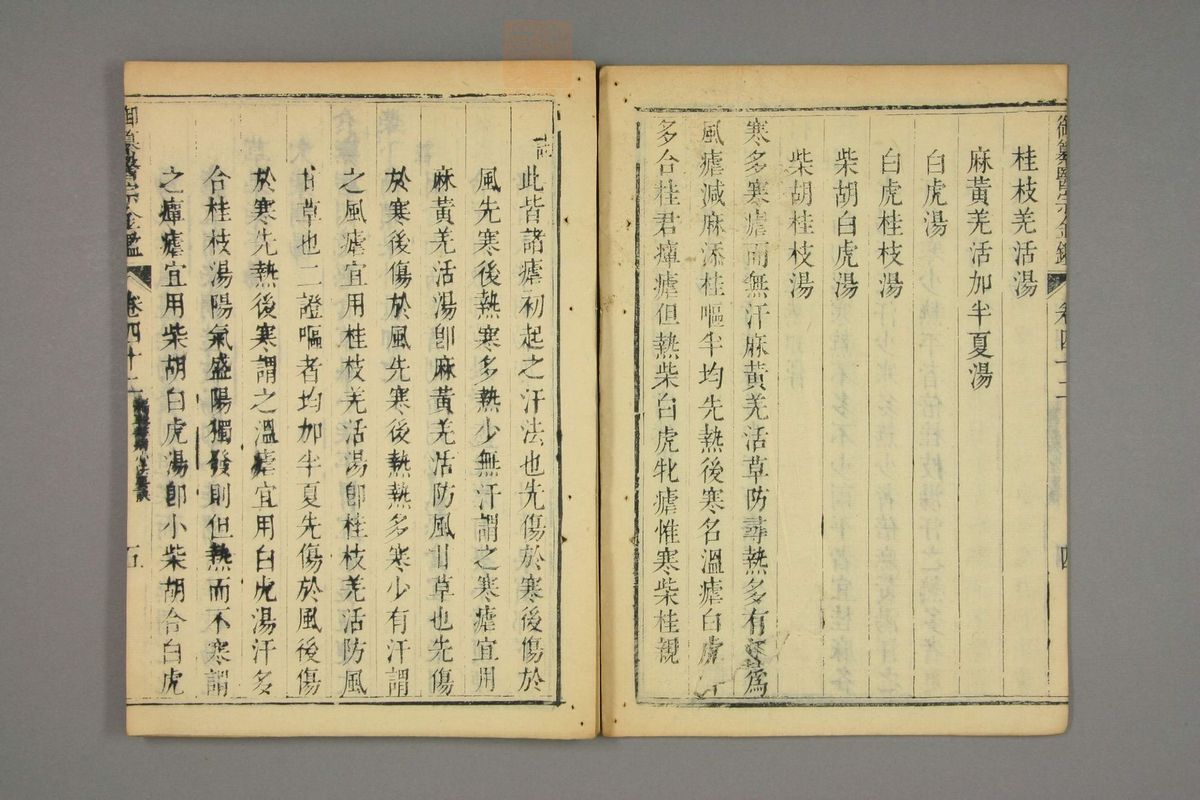 御纂醫宗金鑑 卷四十二 四
桂枝羌活湯
麻黃羌活加半夏湯
白虎湯
白虎桂枝湯
柴胡白虎湯
柴胡桂枝湯
寒多寒瘧而無汗麻黃羌活草防尋熱多有汗為
風瘧減麻添桂嘔半均先熱後寒名溫瘧白虎
多合桂君癉瘧但熱柴白虎牝瘧惟寒柴桂親
註
此皆諸瘧初起之汗法也先傷於寒後傷於
風先寒後熱寒多熱少無汗謂之寒瘧宜用
麻黃羌活湯卽麻黃羌活防風甘草也先傷
於寒後傷於風先寒後熱熱多寒少有汗謂
之風瘧宜用桂枝羌活湯卽桂枝羌活防風
甘草也二證嘔者均加半夏先傷於風後傷
於寒先熱後寒謂之溫瘧宜用白虎湯汗多
合桂枝湯陽氣盛陽獨發則但熱而不寒謂
之癉瘧宜用柴胡白虎湯卽小柴胡合白虎
御纂醫宗金鑑 卷四十二 五